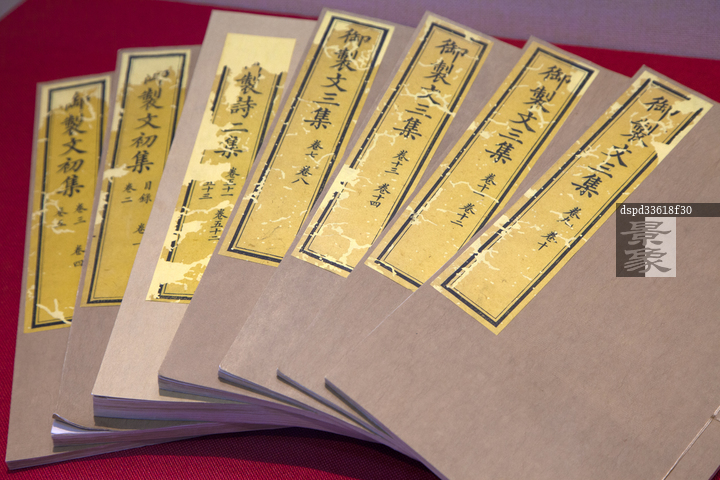 製文初集
卷四
製文初集
目錄
卷一
卷二
製詩二集
卷五十二
御製文三集
卷七 卷八
御製文三集
卷十三 卷十四
御製文三集
卷十一 卷十二
御製文三集
卷十
dspd33618f30
景象